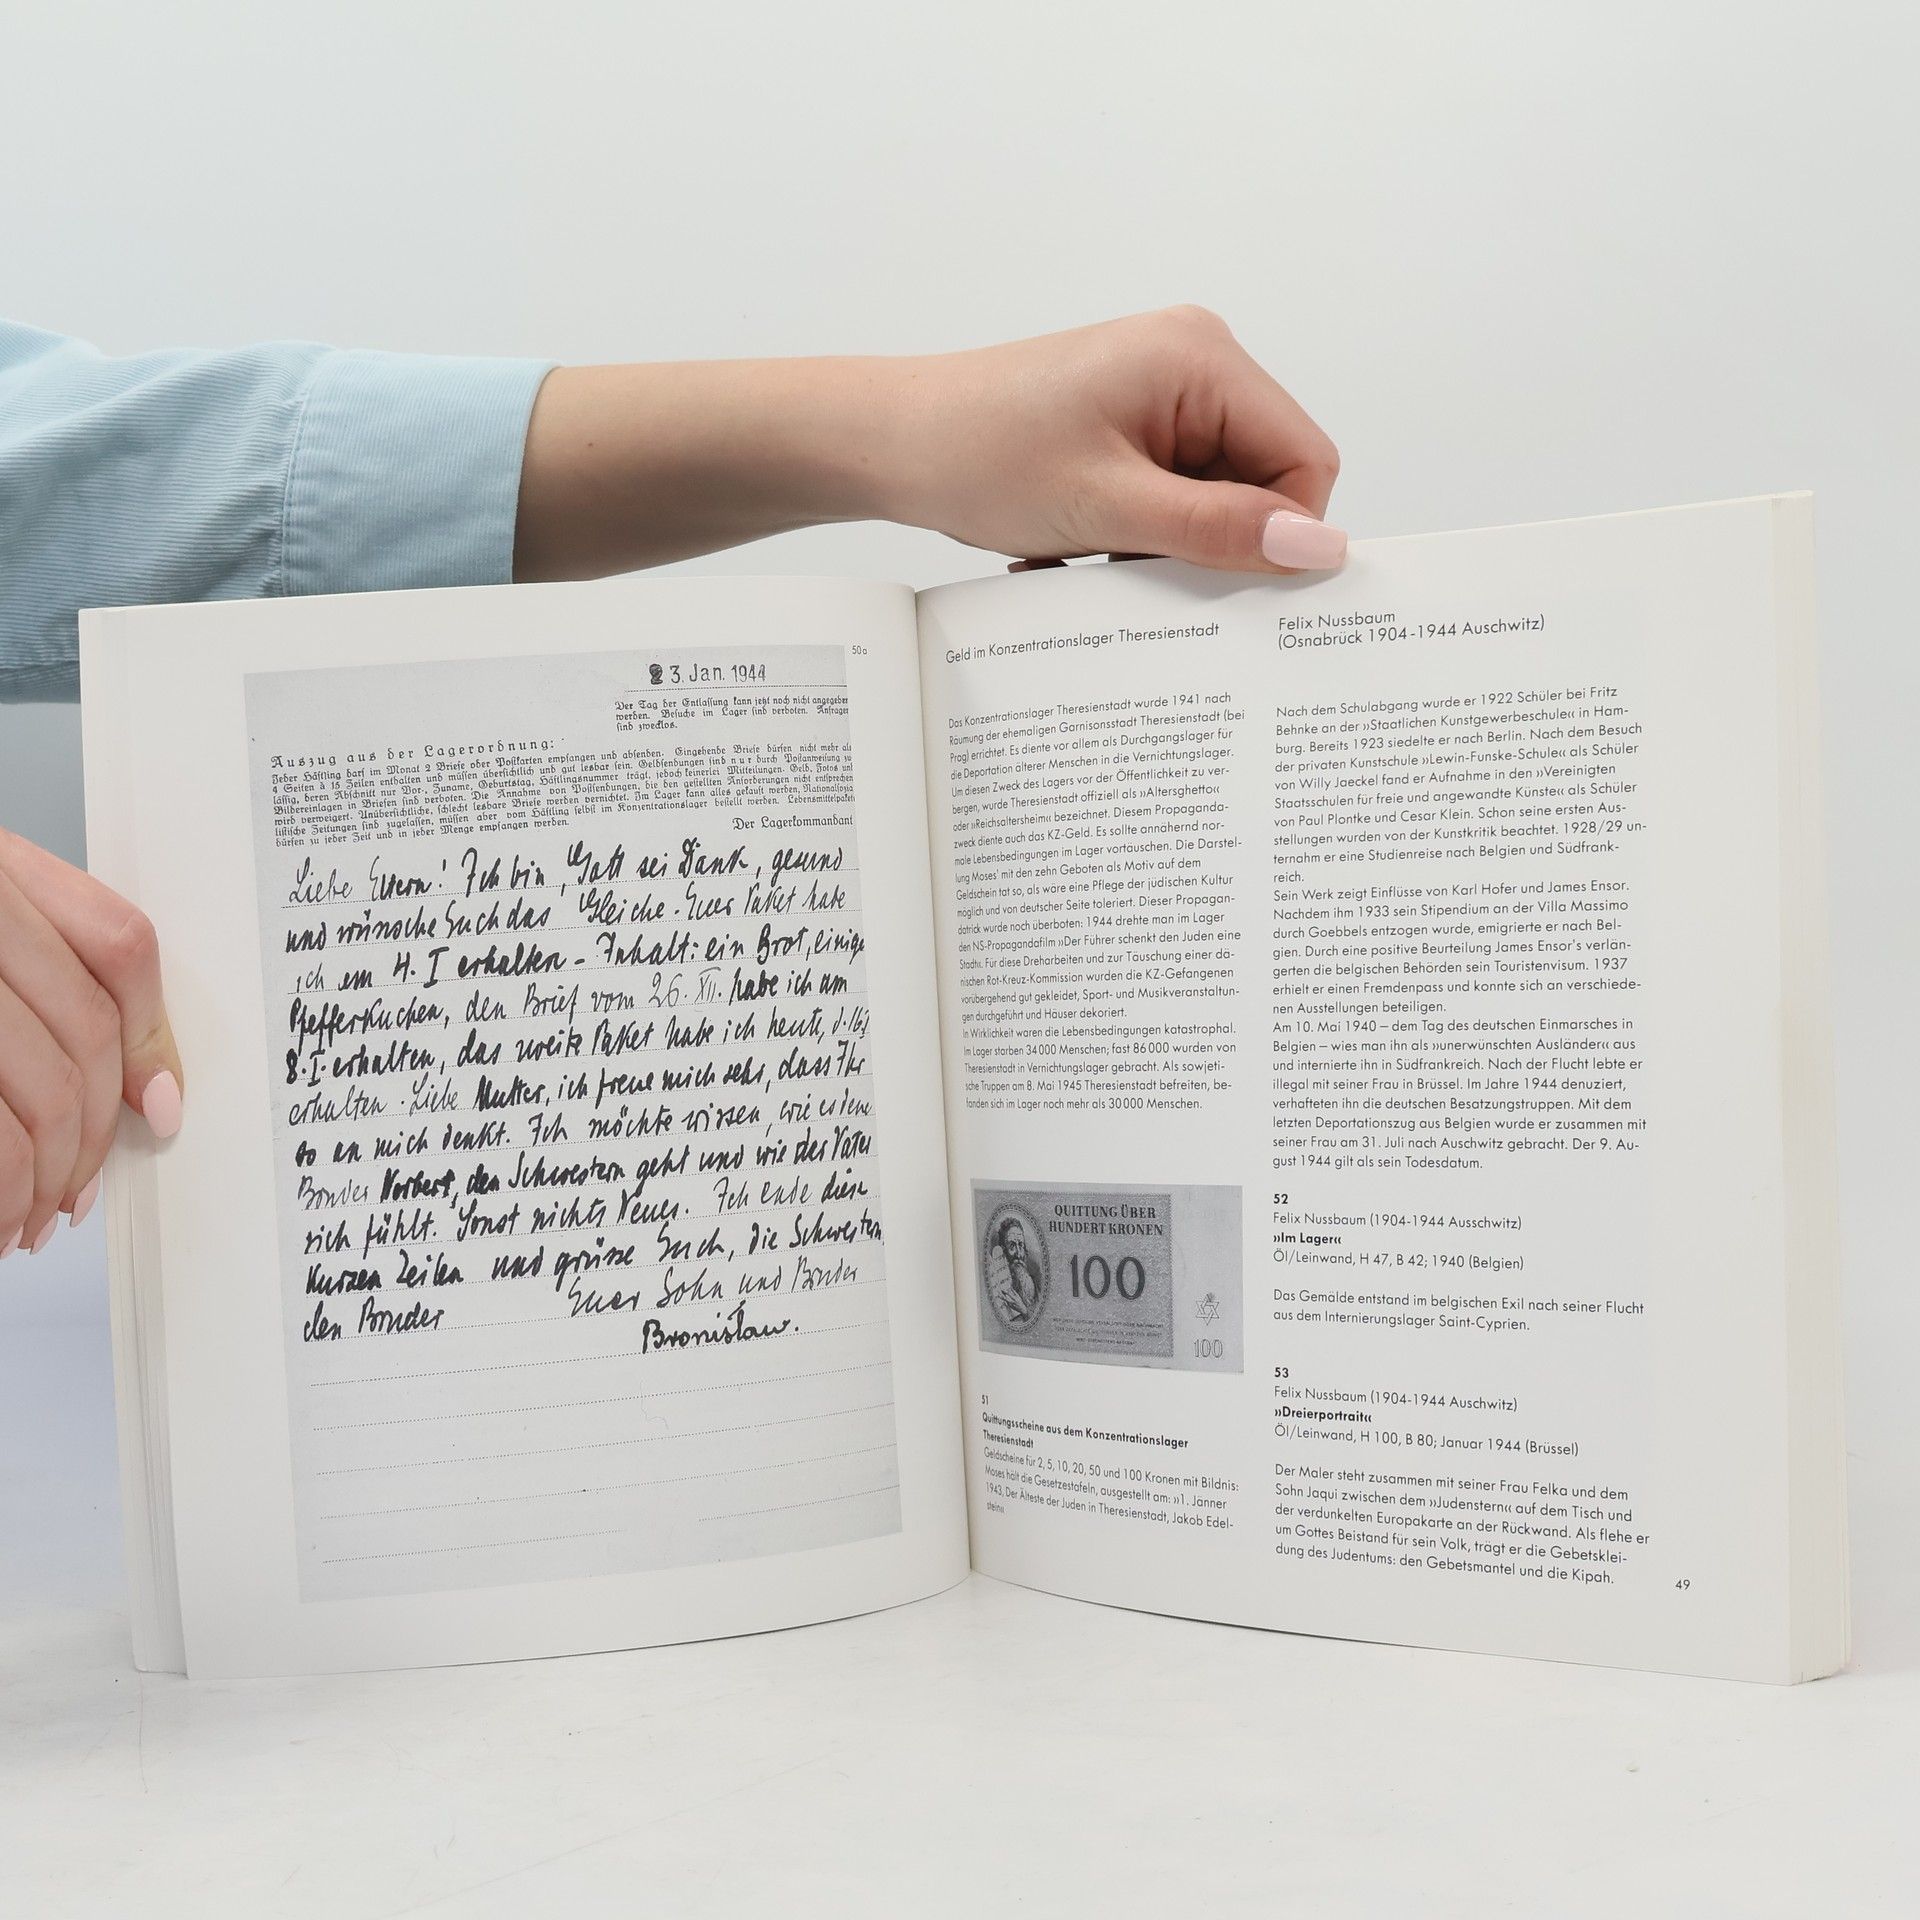 50a
23. Jan. 1944
Der Tag der Entlassung kann jetzt noch nicht angegeben
werden. Besuche im Lager sind verboten. Anfragen
sind zwecklos.
Auszug aus der Lagerordnung:
Jeder Häftling darf im Monat 2 Briefe oder Postkarten empfangen und absenden. Eingehende Briefe dürfen nicht mehr als
4 Seiten à 15 Zeilen enthalten und müssen übersichtlich und gut lesbar sein. Geldsendungen sind nur durch Postanweisung zu-
lässig, deren Abschnitt nur Vor-, Zuname, Geburtstag, Häftlingsnummer trägt, jedoch keinerlei Mitteilungen. Geld, Fotos und
Bildereinlagen in Briefen sind verboten. Die Annahme von Postsendungen, die den gestellten Anforderungen nicht entsprechen
wird verweigert. Unübersichtliche, schlecht lesbare Briefe werden vernichtet. Im Lager kann alles gekauft werden, Nationalsozia
listische Zeitungen sind zugelassen, müssen aber vom Häftling selbst im Konzentrationslager bestellt werden. Lebensmittelpakete
dürfen zu jeder Zeit und in jeder Menge empfangen werden.
Der Lagerkommandant
Liebe Eltern! Ich bin, Gott sei Dank, gesund
und wünsche Euch das Gleiche. Euer Paket habe
ich am 4. I erhalten – Inhalt: ein Brot, einige
Pfefferkuchen, den Brief vom 26. XII. habe ich am
8. I. erhalten, das zweite Paket habe ich heute, d. 16 I
erhalten. Liebe Mutter, ich freue mich sehr, dass Ihr
so an mich denkt. Ich möchte wissen, wie es dem
Bruder Norbert, den Schwestern geht und wie der Vater
sich fühlt. Sonst nichts Neues. Ich ende diese
kurzen Zeilen und grüsse Euch, die Schwestern,
den Bruder Euer Sohn und Bruder
Bronisław.
Geld im Konzentrationslager Theresienstadt
Das Konzentrationslager Theresienstadt wurde 1941 nach
Räumung der ehemaligen Garnisonsstadt Theresienstadt (bei
Prag) errichtet. Es diente vor allem als Durchgangslager für
die Deportation älterer Menschen in die Vernichtungslager.
Um diesen Zweck des Lagers vor der Öffentlichkeit zu ver-
bergen, wurde Theresienstadt offiziell als »Altersghetto«
oder »Reichsaltersheim« bezeichnet. Diesem Propaganda-
zweck diente auch das KZ-Geld. Es sollte annähernd nor-
male Lebensbedingungen im Lager vortäuschen. Die Darstel-
lung Moses' mit den zehn Geboten als Motiv auf dem
Geldschein tat so, als wäre eine Pflege der jüdischen Kultur
möglich und von deutscher Seite toleriert. Dieser Propagan-
datrick wurde noch überboten: 1944 drehte man im Lager
den NS-Propagandafilm »Der Führer schenkt den Juden eine
Stadt«. Für diese Dreharbeiten und zur Täuschung einer dä-
nischen Rot-Kreuz-Kommission wurden die KZ-Gefangenen
vorübergehend gut gekleidet, Sport- und Musikveranstaltun-
gen durchgeführt und Häuser dekoriert.
In Wirklichkeit waren die Lebensbedingungen katastrophal.
Im Lager starben 34 000 Menschen; fast 86 000 wurden von
Theresienstadt in Vernichtungslager gebracht. Als sowjeti-
sche Truppen am 8. Mai 1945 Theresienstadt befreiten, be-
fanden sich im Lager noch mehr als 30 000 Menschen.
QUITTUNG ÜBER
HUNDERT KRONEN
100
100
51
Quittungsscheine aus dem Konzentrationslager
Theresienstadt
Geldscheine für 2, 5, 10, 20, 50 und 100 Kronen mit Bildnis:
Moses hält die Gesetzestafeln, ausgestellt am: »1. Jänner
1943, Der Älteste der Juden in Theresienstadt, Jakob Edel-
stein«
Felix Nussbaum
(Osnabrück 1904-1944 Auschwitz)
Nach dem Schulabgang wurde er 1922 Schüler bei Fritz
Behnke an der »Staatlichen Kunstgewerbeschule« in Ham-
burg. Bereits 1923 siedelte er nach Berlin. Nach dem Besuch
der privaten Kunstschule »Lewin-Funske-Schule« als Schüler
von Willy Jaeckel fand er Aufnahme in den »Vereinigten
Staatsschulen für freie und angewandte Künste« als Schüler
von Paul Plontke und Cesar Klein. Schon seine ersten Aus-
stellungen wurden von der Kunstkritik beachtet. 1928/29 un-
ternahm er eine Studienreise nach Belgien und Südfrank-
reich.
Sein Werk zeigt Einflüsse von Karl Hofer und James Ensor.
Nachdem ihm 1933 sein Stipendium an der Villa Massimo
durch Goebbels entzogen wurde, emigrierte er nach Bel-
gien. Durch eine positive Beurteilung James Ensor's verlän-
gerten die belgischen Behörden sein Touristenvisum. 1937
erhielt er einen Fremdenpass und konnte sich an verschiede-
nen Ausstellungen beteiligen.
Am 10. Mai 1940 – dem Tag des deutschen Einmarsches in
Belgien – wies man ihn als »unerwünschten Ausländer« aus
und internierte ihn in Südfrankreich. Nach der Flucht lebte er
illegal mit seiner Frau in Brüssel. Im Jahre 1944 denuziert,
verhafteten ihn die deutschen Besatzungstruppen. Mit dem
letzten Deportationszug aus Belgien wurde er zusammen mit
seiner Frau am 31. Juli nach Auschwitz gebracht. Der 9. Au-
gust 1944 gilt als sein Todesdatum.
52
Felix Nussbaum (1904-1944 Ausschwitz)
»Im Lager«
Öl/Leinwand, H 47, B 42; 1940 (Belgien)
Das Gemälde entstand im belgischen Exil nach seiner Flucht
aus dem Internierungslager Saint-Cyprien.
53
Felix Nussbaum (1904-1944 Auschwitz)
»Dreierportrait«
Öl/Leinwand, H 100, B 80; Januar 1944 (Brüssel)
Der Maler steht zusammen mit seiner Frau Felka und dem
Sohn Jaqui zwischen dem »Judenstern« auf dem Tisch und
der verdunkelten Europakarte an der Rückwand. Als flehe er
um Gottes Beistand für sein Volk, trägt er die Gebetsklei-
dung des Judentums: den Gebetsmantel und die Kipah.
49